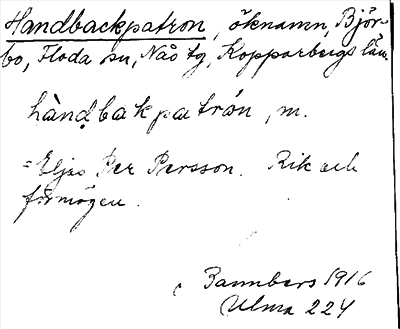 Handbackpatron, öknamn, Björ-
bo, Floda sn, Nås tg, Kopparbergs län.
hàndbakpatrón, m.
= Eljas Per Persson. Rik och
förmögen.
Bannbers 1916
Ulma 224